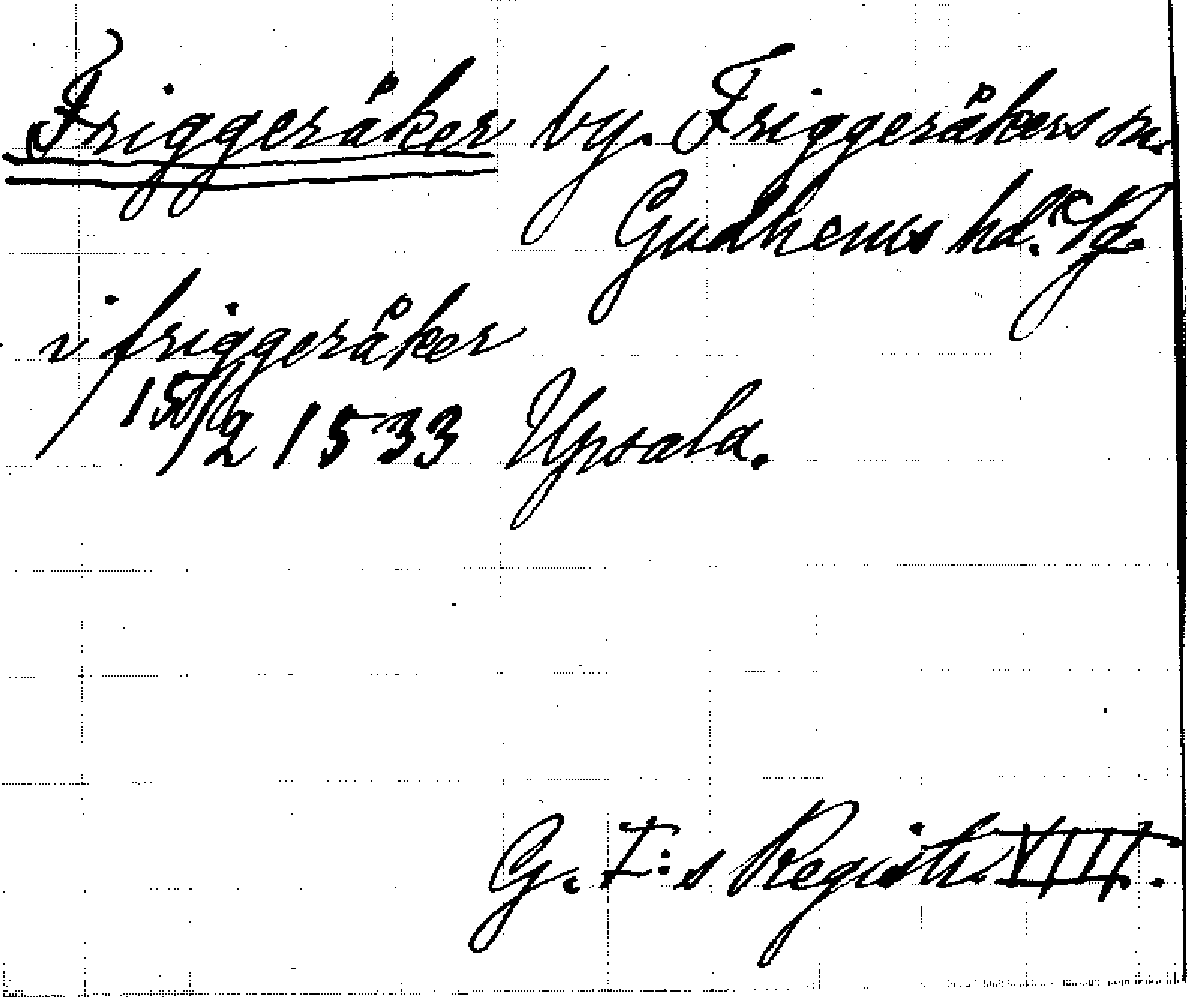 Friggeråker by. Friggeråkers sn.
Gudhems hd. Vg.
i friggeråker
/2 1533 Upsala.
G. I:s Registr. VIII.